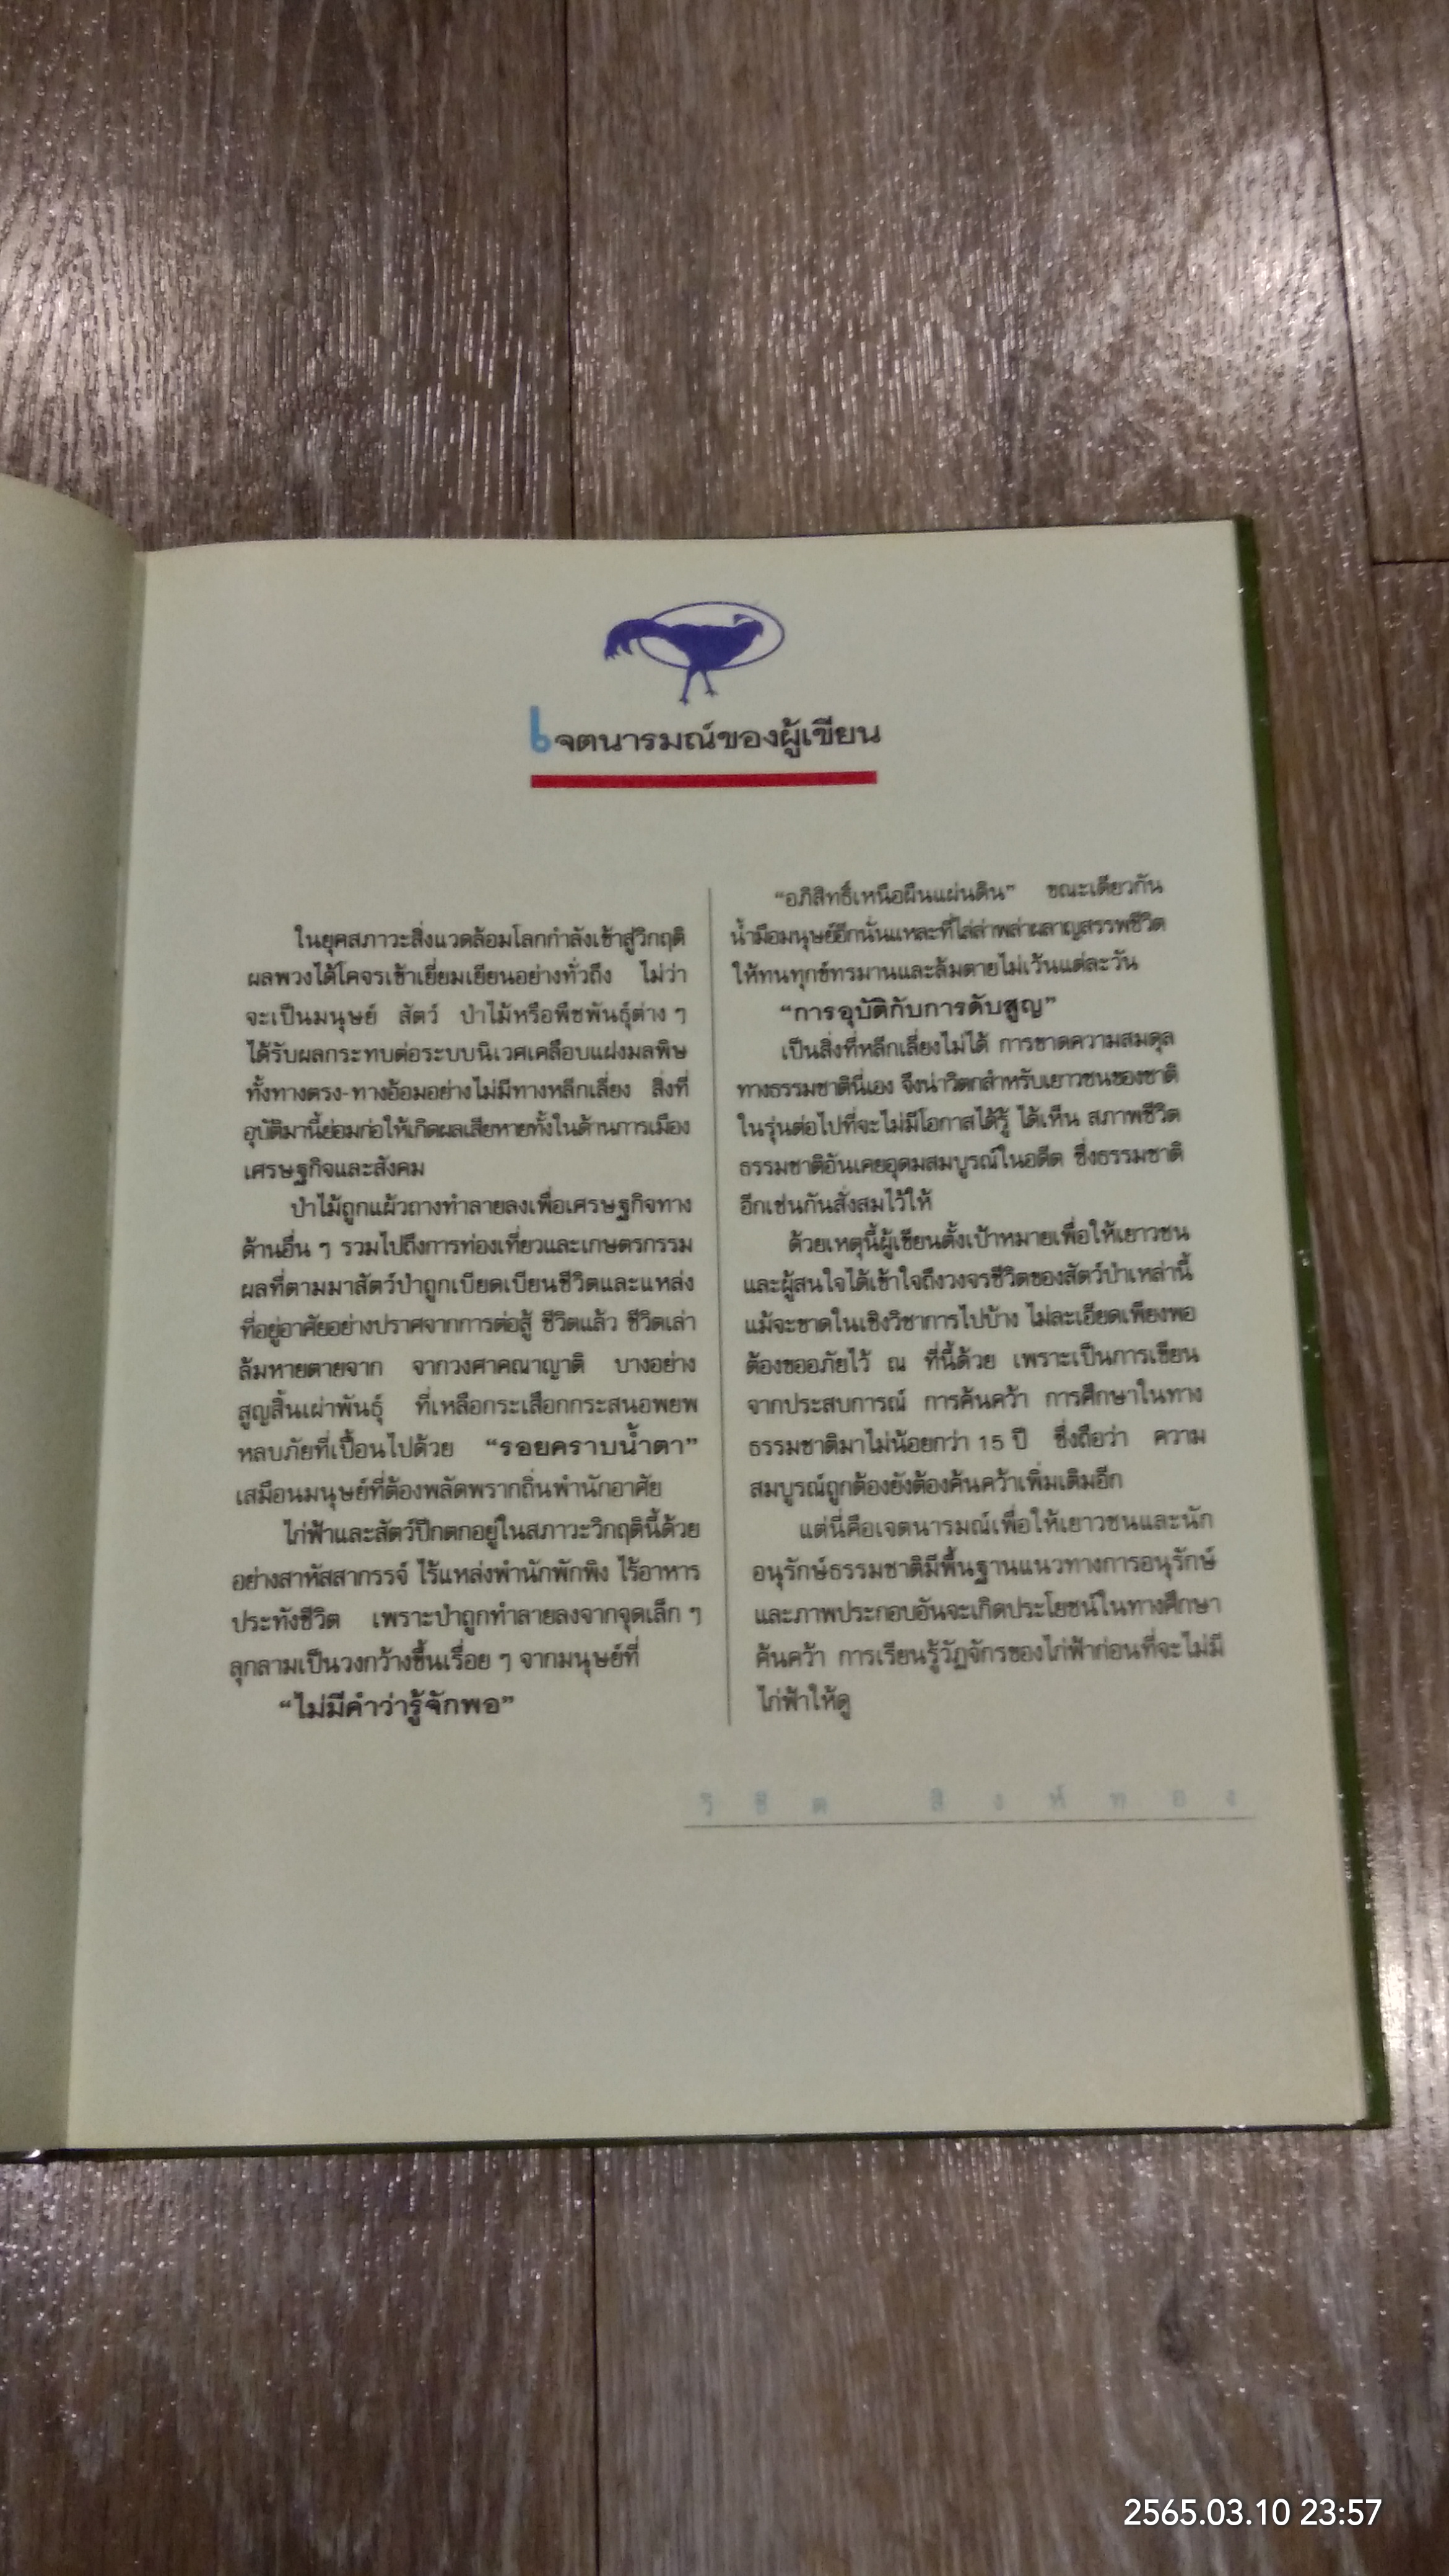 เจตนารมณ์ของผู้เขียน
ในยุคสภาวะสิ่งแวดล้อมโลกกำลังเข้าสู่วิกฤติ
ผลพวงได้โคจรเข้าเยี่ยมเยียนอย่างทั่วถึง ไม่ว่า
จะเป็นมนุษย์ สัตว์ ป่าไม้หรือพืชพันธุ์ต่าง ๆ
ได้รับผลกระทบต่อระบบนิเวศเคลือบแฝงมลพิษ
ทั้งทางตรง-ทางอ้อมอย่างไม่มีทางหลีกเลี่ยง สิ่งที่
อุบัติมานี้ย่อมก่อให้เกิดผลเสียหายทั้งในด้านการเมือง
เศรษฐกิจและสังคม
ป่าไม้ถูกแผ้วถางทำลายลงเพื่อเศรษฐกิจทาง
ด้านอื่น ๆ รวมไปถึงการท่องเที่ยวและเกษตรกรรม
ผลที่ตามมาสัตว์ป่าถูกเบียดเบียนชีวิตและแหล่ง
ที่อยู่อาศัยอย่างปราศจากการต่อสู้ ชีวิตแล้ว ชีวิตเล่า
ล้มหายตายจาก จากวงศาคณาญาติ บางอย่าง
สูญสิ้นเผ่าพันธุ์ ที่เหลือกระเสือกกระสนอพยพ
หลบภัยที่เปื้อนไปด้วย “รอยคราบน้ำตา”
เสมือนมนุษย์ที่ต้องพลัดพรากถิ่นพำนักอาศัย
ไก่ฟ้าและสัตว์ปีกตกอยู่ในสภาวะวิกฤตินี้ด้วย
อย่างสาหัสสากรรจ์ ไร้แหล่งพำนักพักพิง ไร้อาหาร
ประทังชีวิต เพราะป่าถูกทำลายลงจากจุดเล็ก ๆ
ลุกลามเป็นวงกว้างขึ้นเรื่อย ๆ จากมนุษย์ที่
“ไม่มีคำว่ารู้จักพอ”
“อภิสิทธิ์เหนือผืนแผ่นดิน” ขณะเดียวกัน
น้ำมือมนุษย์อีกนั่นแหละที่ไล่ล่าพล่าผลาญสรรพชีวิต
ให้ทนทุกข์ทรมานและล้มตายไม่เว้นแต่ละวัน
“การอุบัติกับการดับสูญ”
เป็นสิ่งที่หลีกเลี่ยงไม่ได้ การขาดความสมดุล
ทางธรรมชาตินี่เอง จึงน่าวิตกสำหรับเยาวชนของชาติ
ในรุ่นต่อไปที่จะไม่มีโอกาสได้รู้ ได้เห็น สภาพชีวิต
ธรรมชาติอันเคยอุดมสมบูรณ์ในอดีต ซึ่งธรรมชาติ
อีกเช่นกันสั่งสมไว้ให้
ด้วยเหตุนี้ผู้เขียนตั้งเป้าหมายเพื่อให้เยาวชน
และผู้สนใจได้เข้าใจถึงวงจรชีวิตของสัตว์ป่าเหล่านี้
แม้จะขาดในเชิงวิชาการไปบ้าง ไม่ละเอียดเพียงพอ
ต้องขออภัยไว้ ณ ที่นี้ด้วย เพราะเป็นการเขียน
จากประสบการณ์ การค้นคว้า การศึกษาในทาง
ธรรมชาติมาไม่น้อยกว่า 15 ปี ซึ่งถือว่า ความ
สมบูรณ์ถูกต้องยังต้องค้นคว้าเพิ่มเติมอีก
แต่นี่คือเจตนารมณ์เพื่อให้เยาวชนและนัก
อนุรักษ์ธรรมชาติมีพื้นฐานแนวทางการอนุรักษ์
และภาพประกอบอันจะเกิดประโยชน์ในทางศึกษา
ค้นคว้า การเรียนรู้วัฏจักรของไก่ฟ้าก่อนที่จะไม่มี
ไก่ฟ้าให้ดู
สิงห์ทอง
2565.03.10 23:57